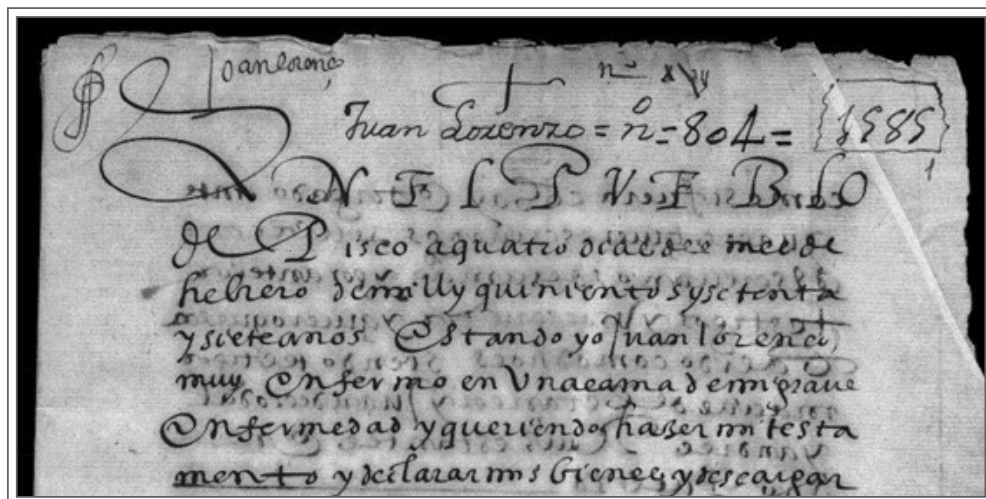 Joan lorenço
Juan Lorenzo = nº = 804 = 1585
EN EL PUEBLO
de Pisco a quatro dias de el mes de
hebrero de mill y quinientos y setenta
y siete anos Estando yo Juan lorenço
muy Enfermo en Una cama de mi grave
Enfermedad y queriendo hazer mi testa
mento y declarar mis bienes y descargar